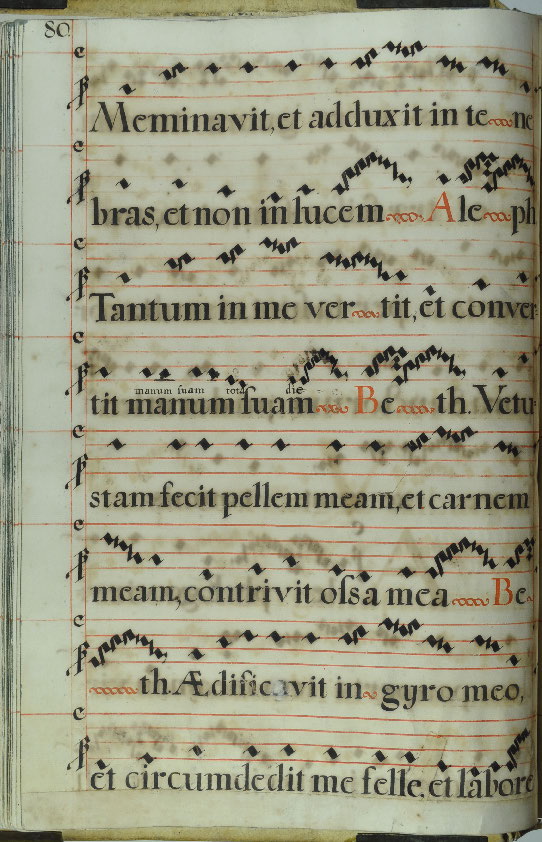 80.
Meminavit, et adduxit in te ne
bras, et non in lucem Aleph
Tantum in me ver tit, et conver
manum suam tota die
tit manum suam Beth. Vetu
stam fecit pellem meam, et carnem
meam, contrivit ossa mea Be
th. Ædificavit in gyro meo,
et circumdedit me felle, et labore